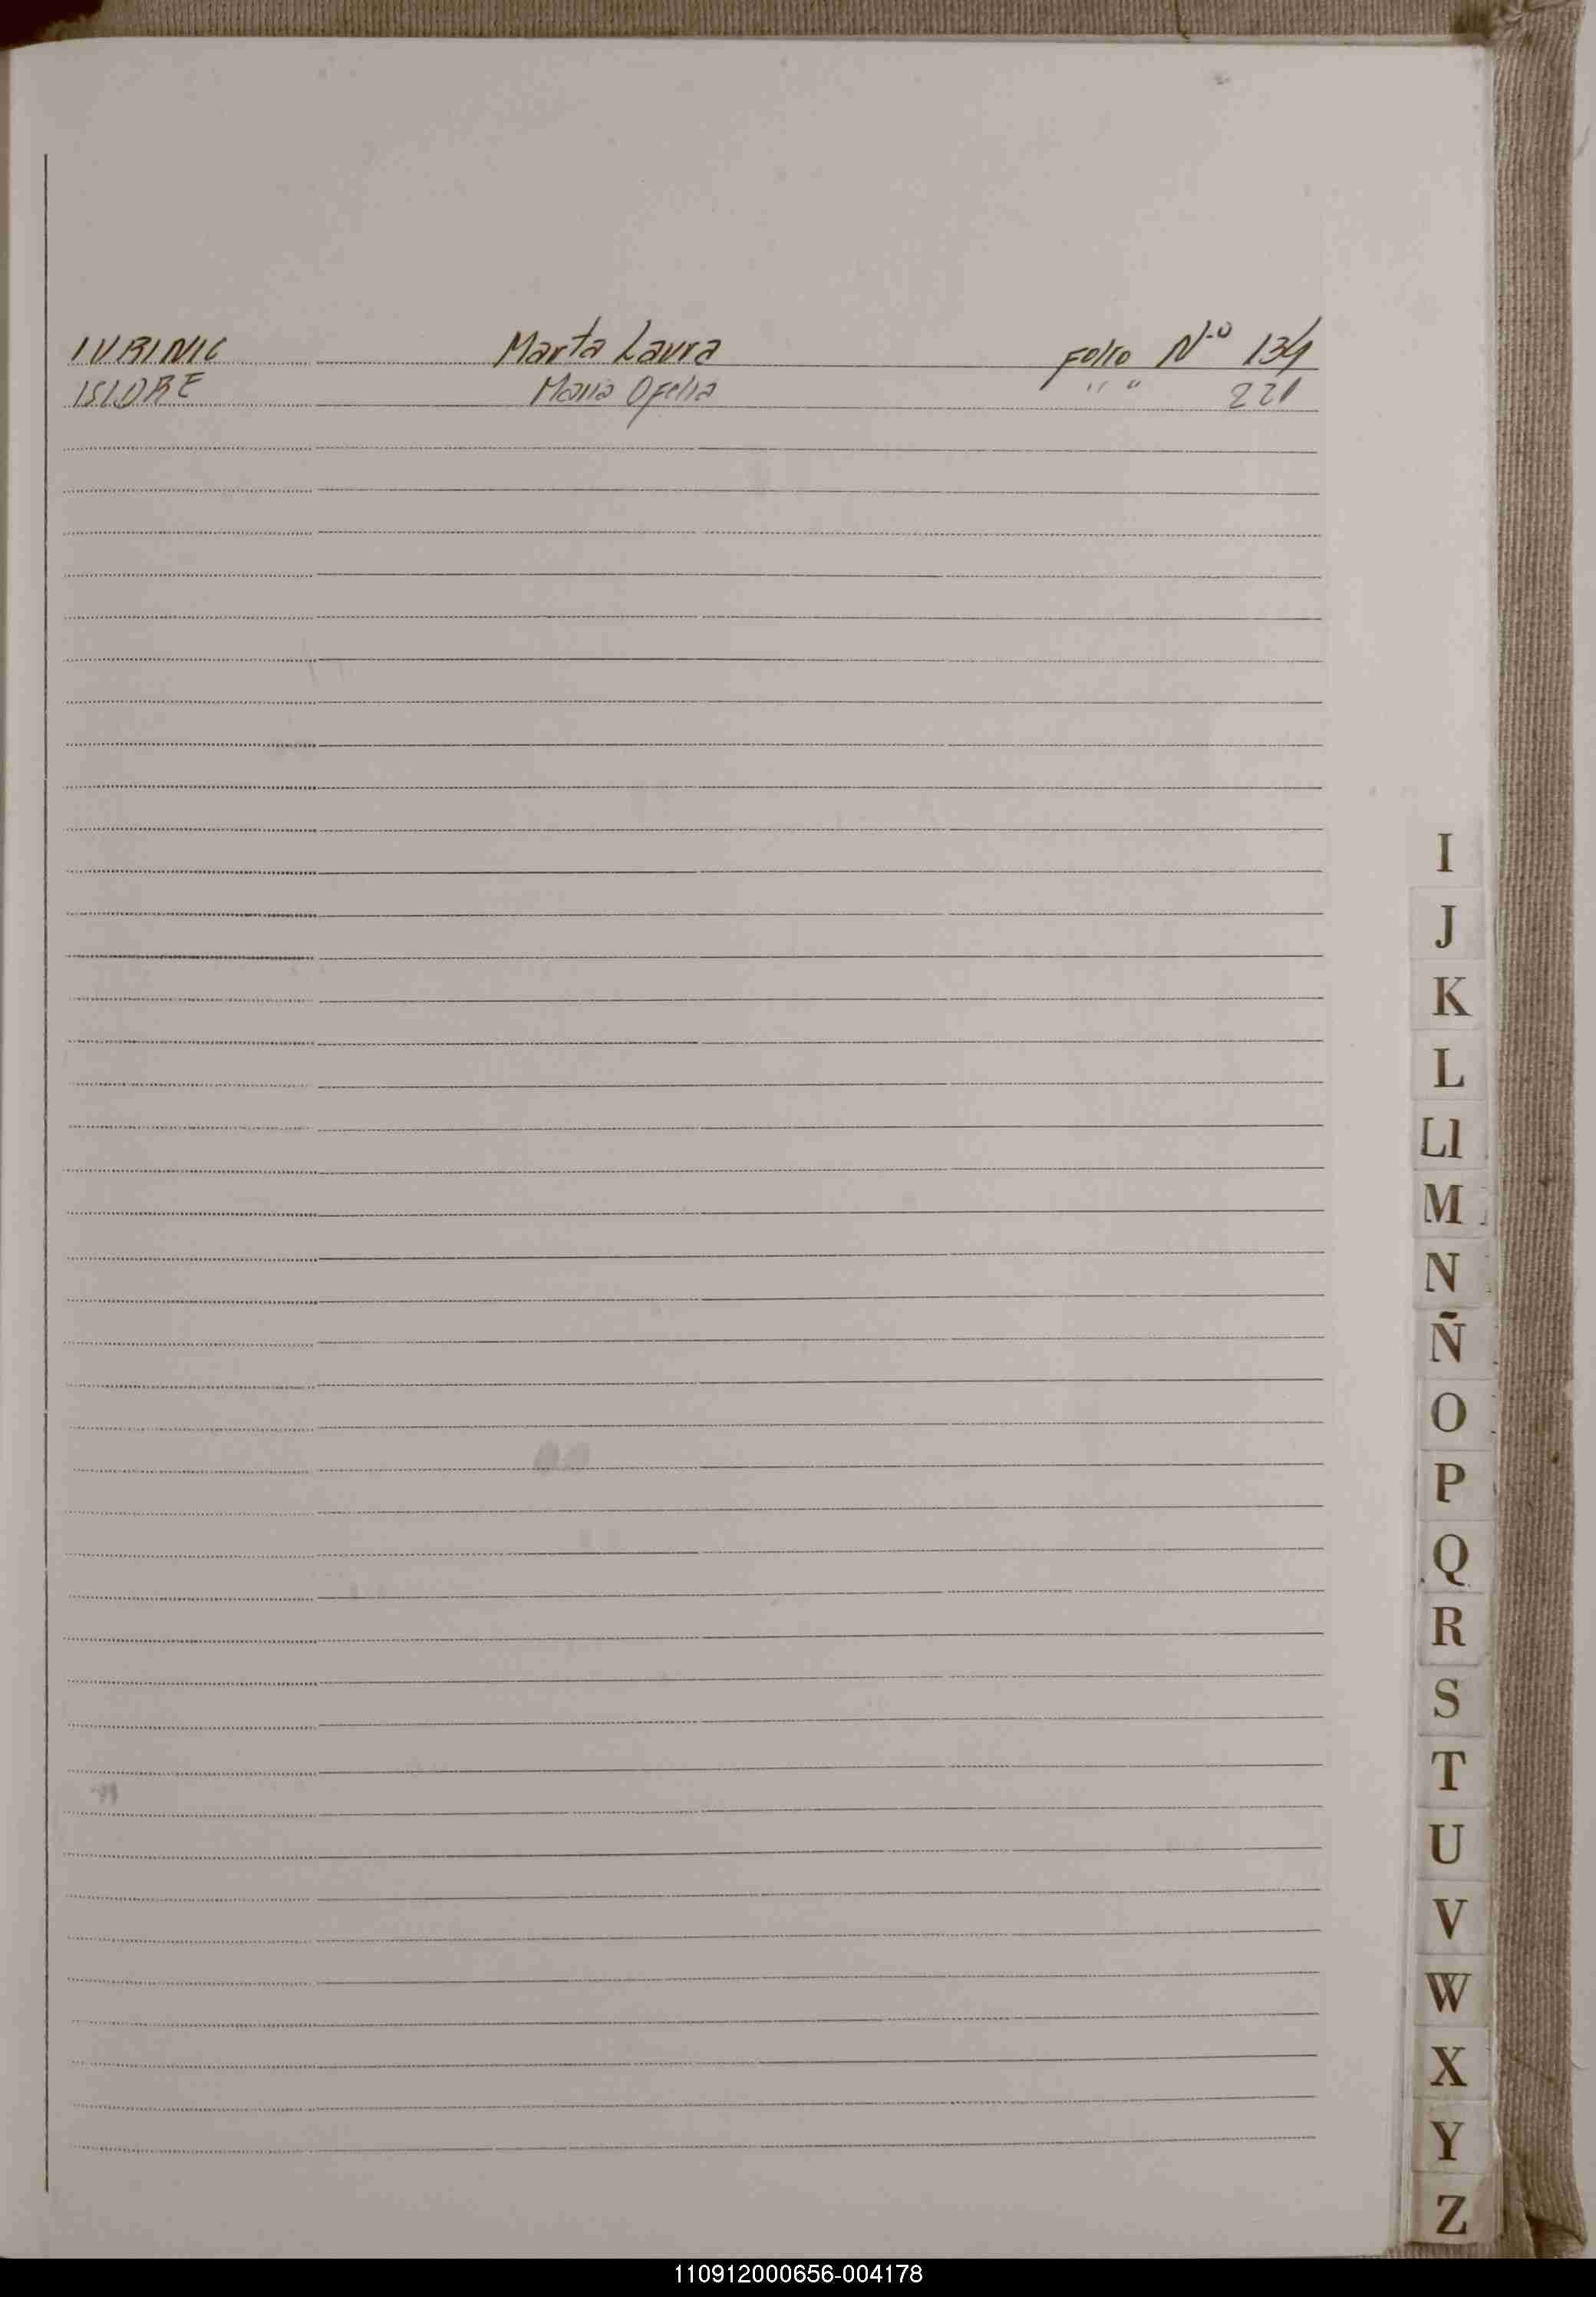 IVBINIC Marta Laura Folio N.o 134
ISLORE Maria Ofelia " " 221
I
J
K
L
Ll
M
N
Ñ
O
P
Q
R
S
T
U
V
W
X
Y
Z
110912000656-004178